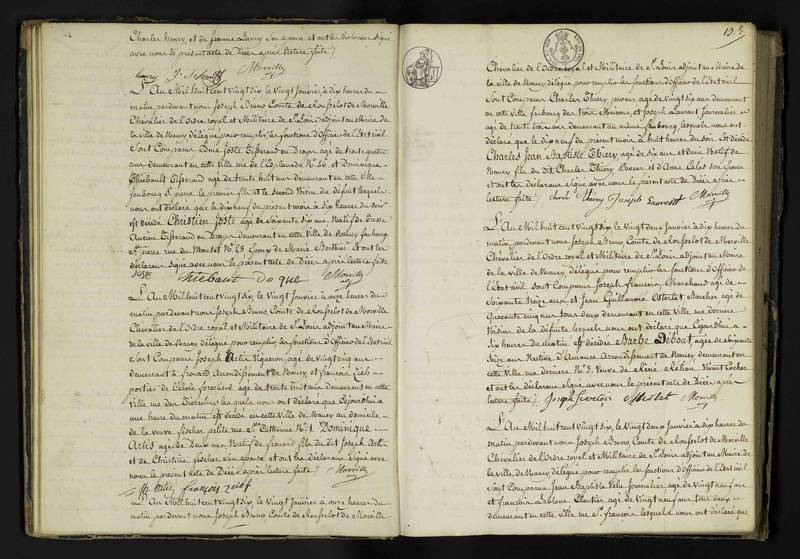 Charles Henry, et de Jeanne Remy son épouse et ont les déclarans signé
avec nous le présent acte de Décès après lecture faite /.
Morville
L'An Mil huit cent Vingt Six, le Vingt Janvier à dix heures du
matin pardevant nous Joseph Bruno Comte de Rousselot de Morville
Chevalier de l'Ordre royal et Militaire de St Louis adjoint au Maire de
la ville de Nancy délégué pour remplir les fonctions d'Officier de l'état civil
Sont Comparus Dme Joste Tisserand en Draps agé de trente quatre
ans demeurant en cette Ville rue de l'Esplanade No 56 et Dominique
Thiebault Tisserand agé de trente huit ans demeurant en cette ville
faubourg St pierre le premier fils et le second Voisin du défunt lesquels
nous ont déclaré que le dix neuf du présent mois à six heures du soir
est décédé Christien Joste agé de soixante six ans Natif de
Ancien Tisserand en Draps demeurant en cette ville de Nancy faubourg
St pierre rue du Montet No 28 Epoux de Marie Berthier Et ont les
déclarans signé avec nous le présent acte de Décès après lecture faite
Joste thiebaut Do que Morville
L'An Mil huit cent Vingt Six, le Vingt Janvier à onze heures du
matin, pardevant nous Joseph Bruno Comte de Rousselot de Morville
Chevalier de l'Ordre royal et Militaire de St Louis adjoint au Maire
de la ville de Nancy délégué pour remplir les fonctions d'Officier de l'état civil
Sont Comparus Joseph Artis Vigneron, agé de vingt cinq ans
demeurant à frouard Arrondissement de Nancy et françois Zieh
portier de l'école forestière agé de trente huit ans demeurant en cette
Ville rue des Tiercelins lesquels nous ont déclaré que Cejourd'hui à
une heure du matin est décédé en cette ville de Nancy au domicile
de la veuve fischer petite rue Ste Catherine No 1. Dominique
Artis agé de Deux ans Natif de frouard fils du dit Joseph Artis
et de Christine fischer son épouse et ont les déclarans signé avec
nous le présent acte de Décès après lecture faite /. Morville
françois Zieh
L'An Mil huit cent Vingt Six, le Vingt Janvier à onze heures du
matin, pardevant nous Joseph Bruno Comte de Rousselot de Morville
13.
Chevalier de l'Ordre royal et Militaire de St Louis adjoint au Maire de
la ville de Nancy délégué pour remplir les fonctions d'Officier de l'état civil
Sont Comparus Charles Thiery paveur agé de Vingt six ans demeurant
en cette Ville faubourg des trois Maisons, et Joseph Laurent Journalier
agé de trente trois ans demeurant au même faubourg, lesquels nous ont
déclaré que le dix neuf du présent mois à huit heures du soir Est décédé
Charles Jean Baptiste Thiery agé de six ans et demi Natif de
Nancy, fils du Dit Charles Thiery Paveur et d'Anne Calas son épouse
et ont les déclarans signé avec nous le présent acte de Décès après
lecture faite /. Charle thiery Joseph Laurent Morville
L'An Mil huit cent Vingt Six, le Vingt deux Janvier à dix heures du
matin pardevant nous Joseph Bruno Comte de Rousselot de Morville
Chevalier de l'Ordre royal et Militaire de St Louis adjoint au Maire
de la ville de Nancy, délégué pour remplir les fonctions d'Officier de
l'état civil sont Comparus Joseph francois Marchand agé de
Soixante Seize ans et Jean Guillaume Osterlet Boucher agé de
quarante cinq ans tous deux demeurant en cette Ville rue derriere
Voisins de la défunte lesquels nous ont déclaré que Cejourd'hui à
Six heures du matin est décédée Barbe Débout agée de Soixante
Seize ans Native d'Amance Arrondissement de Nancy demeurant en
cette Ville rue derriere No 3. Veuve de Vivant Cocher
et ont les déclarans signé avec nous le présent acte de Décès après
lecture faite /. Joseph Osterlet Morville
L'An Mil huit cent Vingt Six, le Vingt deux Janvier à dix heures du
matin pardevant nous Joseph Bruno Comte de Rousselot de Morville
Chevalier de l'Ordre royal et Militaire de St Louis adjoint au Maire de
la ville de Nancy délégué pour remplir les fonctions d'Officier de l'état civil
Sont Comparus Jean Baptiste Journalier agé de Vingt neuf ans
et francois Leblanc agé de Vingt neuf ans tous deux
demeurant en cette Ville rue St francois lesquels nous ont déclaré que